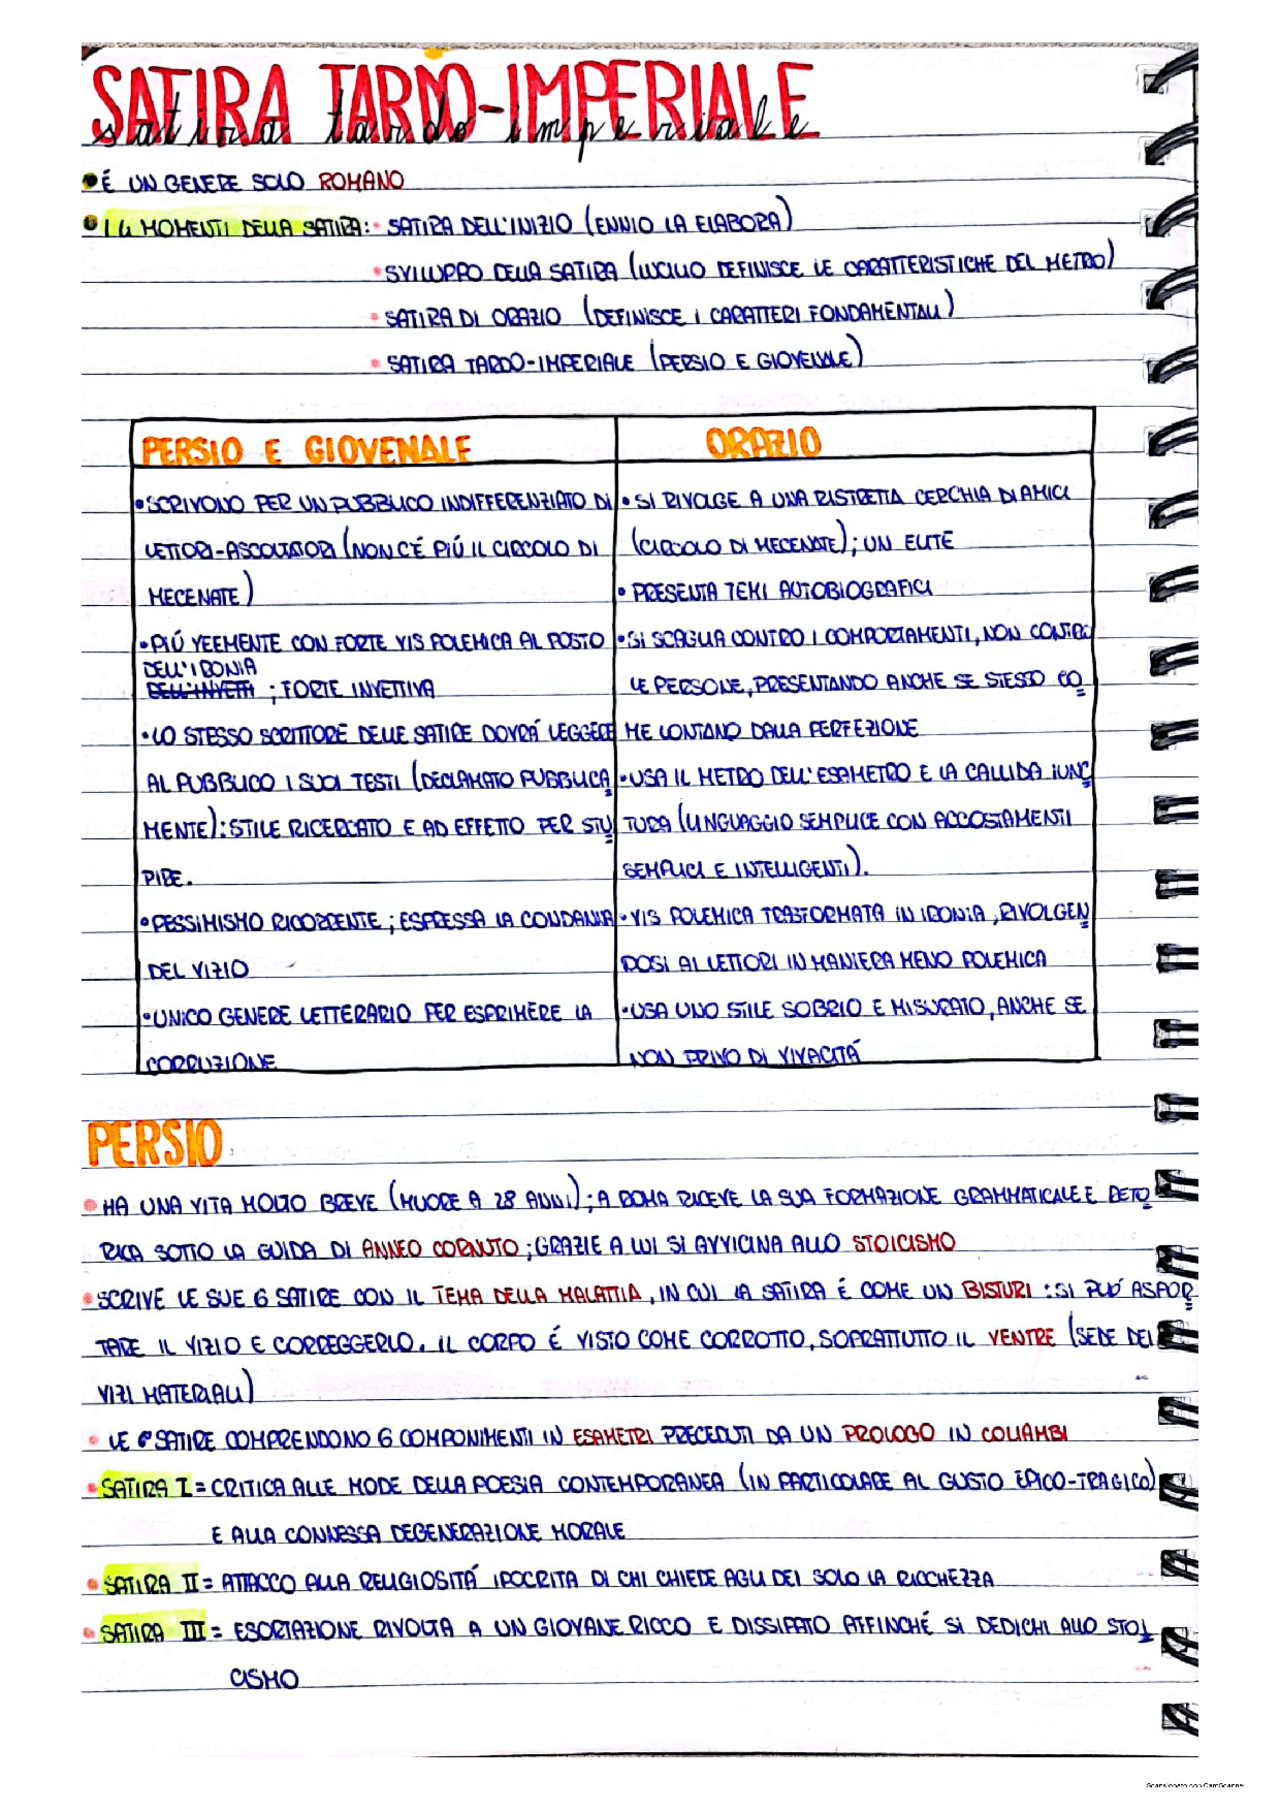 SATIRA TARDO-IMPERIALE
satira tardo imperiale
• É UN GENERE SOLO ROMANO
• I 4 MOMENTI DELLA SATIRA: • SATIRA DELL'INIZIO (ENNIO LA ELABORA)
• SVILUPPO DELLA SATIRA (LUCILIO DEFINISCE LE CARATTERISTICHE DEL METRO)
• SATIRA DI ORAZIO (DEFINISCE I CARATTERI FONDAMENTALI)
• SATIRA TARDO-IMPERIALE (PERSIO E GIOVENALE)
PERSIO E GIOVENALE
• SCRIVONO PER UN PUBBLICO INDIFFERENZIATO DI
LETTORI-ASCOLTATORI (NON C'É PIÚ IL CIRCOLO DI
MECENATE)
• PIÚ VEEMENTE CON FORTE VIS POLEMICA AL POSTO
DELL'IRONIA
DELL'INVETA ; FORTE INVETTIVA
• LO STESSO SCRITTORE DELLE SATIRE DOVRÁ LEGGERE
AL PUBBLICO I SUOI TESTI (DECLAMATO PUBBLICA
MENTE): STILE RICERCATO E AD EFFETTO PER STU
PIRE.
• PESSIMISMO RICORRENTE; ESPRESSA LA CONDANNA
DEL VIZIO
• UNICO GENERE LETTERARIO PER ESPRIMERE LA
CORRUZIONE
ORAZIO
• SI RIVOLGE A UNA RISTRETTA CERCHIA DI AMICI
(CIRCOLO DI MECENATE); UN ELITE
• PRESENTA TEMI AUTOBIOGRAFICI
• SI SCAGLIA CONTRO I COMPORTAMENTI, NON CONTRO
LE PERSONE, PRESENTANDO ANCHE SE STESSO CO
ME LONTANO DALLA PERFEZIONE
• USA IL METRO DELL'ESAMETRO E LA CALLIDA IUNC
TURA (LINGUAGGIO SEMPLICE CON ACCOSTAMENTI
SEMPLICI E INTELLIGENTI).
• VIS POLEMICA TRASFORMATA IN IRONIA, RIVOLGEN
DOSI AI LETTORI IN MANIERA MENO POLEMICA
• USA UNO STILE SOBRIO E MISURATO, ANCHE SE
NON PRIVO DI VIVACITÁ
PERSIO
• HA UNA VITA MOLTO BREVE (MUORE A 28 ANNI); A ROMA RICEVE LA SUA FORMAZIONE GRAMMATICALE E RETO
RICA SOTTO LA GUIDA DI ANNEO CORNUTO; GRAZIE A LUI SI AVVICINA ALLO STOICISMO
• SCRIVE LE SUE 6 SATIRE CON IL TEMA DELLA MALATTIA, IN CUI LA SATIRA É COME UN BISTURI: SI PUÓ ASPOR
TARE IL VIZIO E CORREGGERLO. IL CORPO É VISTO COME CORROTTO, SOPRATTUTTO IL VENTRE (SEDE DEI
VIZI MATERIALI)
• LE 6 SATIRE COMPRENDONO 6 COMPONIMENTI IN ESAMETRI PRECEDUTI DA UN PROLOGO IN COLIAMBI
• SATIRA I = CRITICA ALLE MODE DELLA POESIA CONTEMPORANEA (IN PARTICOLARE AL GUSTO EPICO-TRAGICO)
E ALLA CONNESSA DEGENERAZIONE MORALE
• SATIRA II = ATTACCO ALLA RELIGIOSITÁ IPOCRITA DI CHI CHIEDE AGLI DEI SOLO LA RICCHEZZA
• SATIRA III = ESORTAZIONE RIVOLTA A UN GIOVANE RICCO E DISSIPATO AFFINCHÉ SI DEDICHI ALLO STOI
CISMO
Scansionato con CamScanner